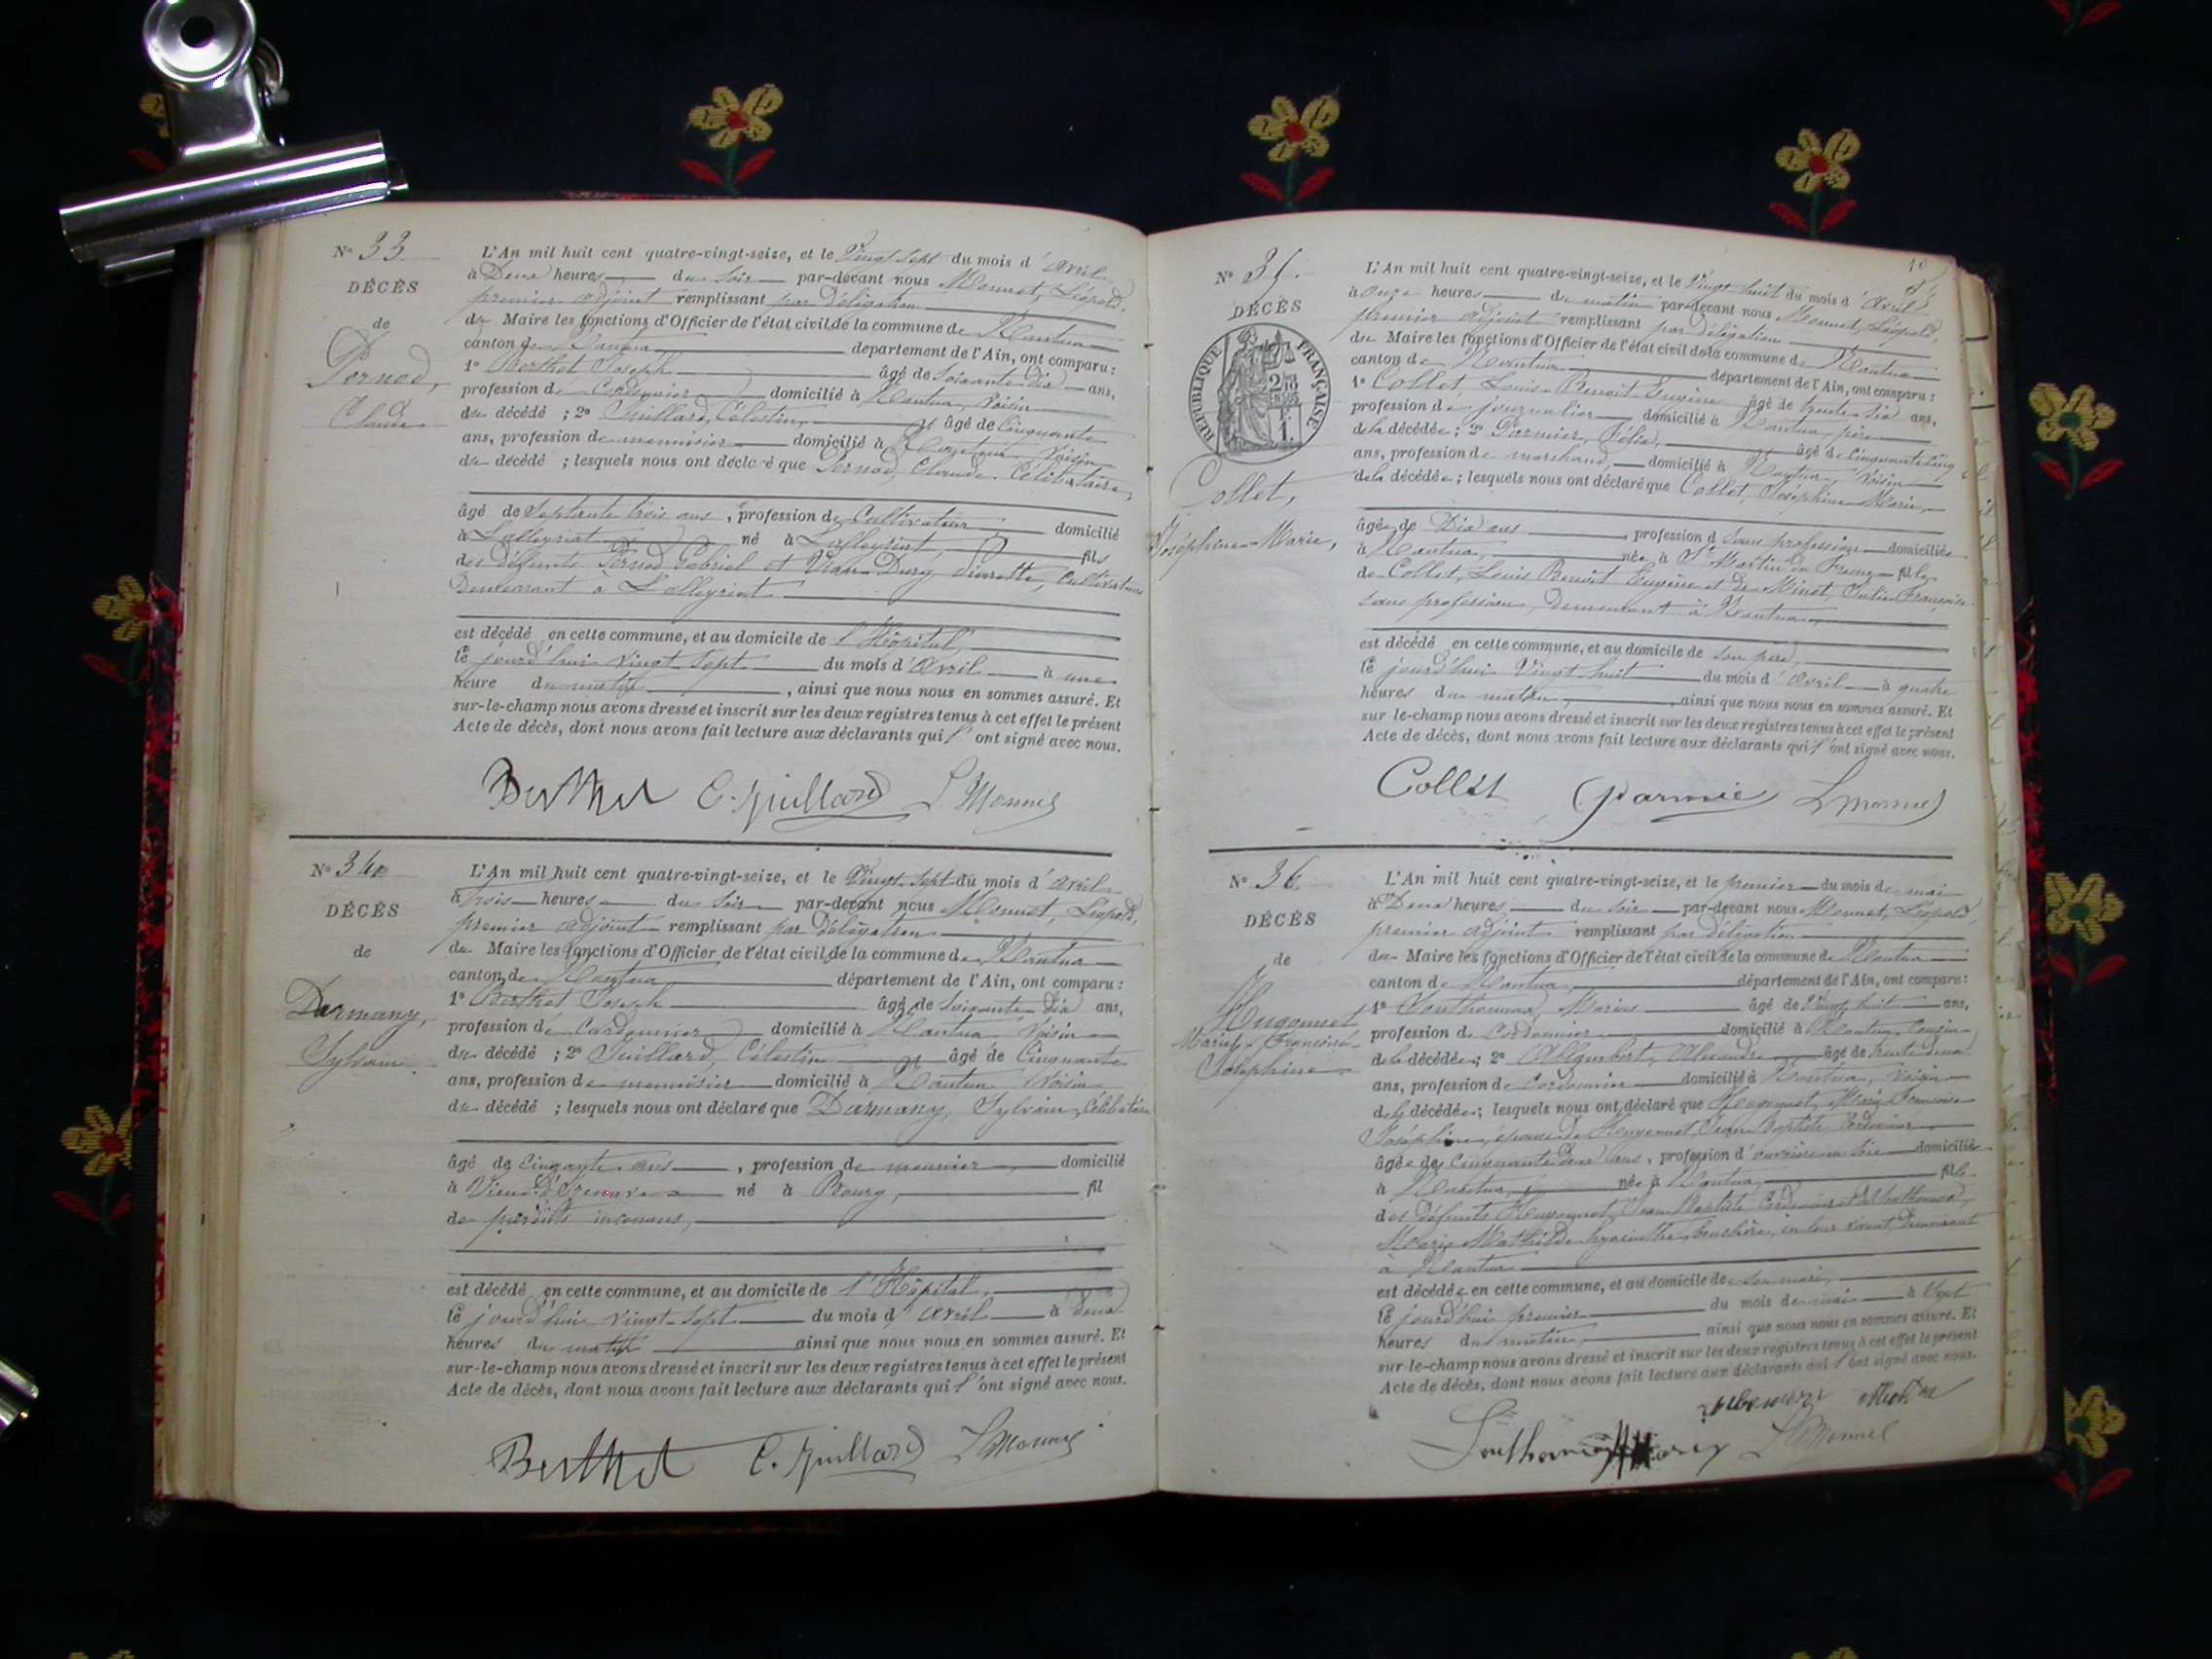 N° 33
DÉCÈS
de
Pernod,
Claude
L'An mil huit cent quatre-vingt-seize, et le Vingt sept du mois d'avril
à Deux heures du soir par-devant nous Monnet, Léopold,
premier adjoint remplissant par délégation
du Maire les fonctions d'Officier de l'état civil de la commune de Nantua
canton de Nantua département de l'Ain, ont comparu :
1° Berthet Joseph âgé de soixante-dix ans,
profession de Cordonnier domicilié à Nantua, voisin
du décédé ; 2° Juillard, Célestin, âgé de Cinquante
ans, profession de menuisier domicilié à Nantua voisin
du décédé ; lesquels nous ont déclaré que Pernod, Claude, Célibataire,
âgé de septante trois ans, profession de Cultivateur domicilié
à Lalleyriat né à Lalleyriat, fils
des défunts Pernod Gabriel et Pierrette, cultivateurs
demeurant à Lalleyriat
est décédé en cette commune, et au domicile de l'Hôpital,
le jourd'hui vingt-sept du mois d'avril à une
heure du matin, ainsi que nous nous en sommes assuré. Et
sur-le-champ nous avons dressé et inscrit sur les deux registres tenus à cet effet le présent
Acte de décès, dont nous avons fait lecture aux déclarants qui l'ont signé avec nous.
Berthet C. Juillard L Monnet
N° 34
DÉCÈS
de
Darmany,
Sylvain
L'An mil huit cent quatre-vingt-seize, et le Vingt sept du mois d'avril
à trois heures du soir par-devant nous Monnet, Léopold,
premier adjoint remplissant par délégation
du Maire les fonctions d'Officier de l'état civil de la commune de Nantua
canton de Nantua département de l'Ain, ont comparu :
1° Berthet Joseph âgé de soixante dix ans,
profession de Cordonnier domicilié à Nantua voisin
du décédé ; 2° Juillard, Célestin âgé de Cinquante
ans, profession de menuisier domicilié à Nantua voisin
du décédé ; lesquels nous ont déclaré que Darmany, Sylvain, Célibataire
âgé de cinquante ans, profession de meunier domicilié
à Vieu d'Izenave né à Bourg, fil
de parents inconnus,
est décédé en cette commune, et au domicile de l'Hôpital,
le jourd'hui vingt-sept du mois d'avril à deux
heures du matin ainsi que nous nous en sommes assuré. Et
sur-le-champ nous avons dressé et inscrit sur les deux registres tenus à cet effet le présent
Acte de décès, dont nous avons fait lecture aux déclarants qui l'ont signé avec nous.
Berthet C. Juillard L Monnet
10
N° 35
DÉCÈS
RÉPUBLIQUE FRANÇAISE
Collet,
Joséphine-Marie,
L'An mil huit cent quatre-vingt-seize, et le Vingt huit du mois d'avril
à onze heures du matin par-devant nous Monnet, Léopold,
premier adjoint remplissant par délégation
du Maire les fonctions d'Officier de l'état civil de la commune de Nantua
canton de Nantua département de l'Ain, ont comparu :
1° Collet, Louis-Benoit Eugène âgé de trente-six ans,
profession de journalier domicilié à Nantua, père
de la décédée ; 2° Parmier, Félix, âgé de cinquante cinq
ans, profession de marchand, domicilié à Nantua voisin
de la décédée ; lesquels nous ont déclaré que Collet, Joséphine Marie,
âgée de Dix ans, profession d sans profession domiciliée
à Nantua, née à St Martin du Fresne fille
de Collet, Louis Benoit Eugène et de Minet, Julie Françoise
sans profession, demeurant à Nantua,
est décédé en cette commune, et au domicile de son père,
le jourd'hui Vingt huit du mois d'avril à quatre
heures du matin, ainsi que nous nous en sommes assuré. Et
sur-le-champ nous avons dressé et inscrit sur les deux registres tenus à cet effet le présent
Acte de décès, dont nous avons fait lecture aux déclarants qui l'ont signé avec nous.
Collet Parmie L Monnet
N° 36
DÉCÈS
de
Hugonnet
Marie-Françoise
Joséphine
L'An mil huit cent quatre-vingt-seize, et le premier du mois de mai
à Deux heures du soir par-devant nous Monnet, Léopold,
premier adjoint remplissant par délégation
du Maire les fonctions d'Officier de l'état civil de la commune de Nantua
canton de Nantua, département de l'Ain, ont comparu :
1° Southonnax, Marius âgé de Vingt huit ans,
profession de Cordonnier domicilié à Nantua Cousin
de la décédée ; 2° Alexandre âgé de trente deux
ans, profession de Cordonnier domicilié à Nantua, voisin
de la décédée ; lesquels nous ont déclaré que Hugonnet, Marie Françoise
Joséphine, épouse de Hugonnet, Jean Baptiste, Cordonnier
âgée de cinquante deux ans, profession d'ouvrière en soie domiciliée
à Nantua, née à Nantua, fille
des défunts Hugonnet, Jean Baptiste Cordonnier et de Southonnax,
Marie Mathilde hyacinthe, bouchère, en leur vivant, demeurant
à Nantua
est décédée en cette commune, et au domicile de son mari,
le jourd'hui premier du mois de mai à sept
heures du matin, ainsi que nous nous en sommes assuré. Et
sur-le-champ nous avons dressé et inscrit sur les deux registres tenus à cet effet le présent
Acte de décès, dont nous avons fait lecture aux déclarants qui l'ont signé avec nous.
L Monnet